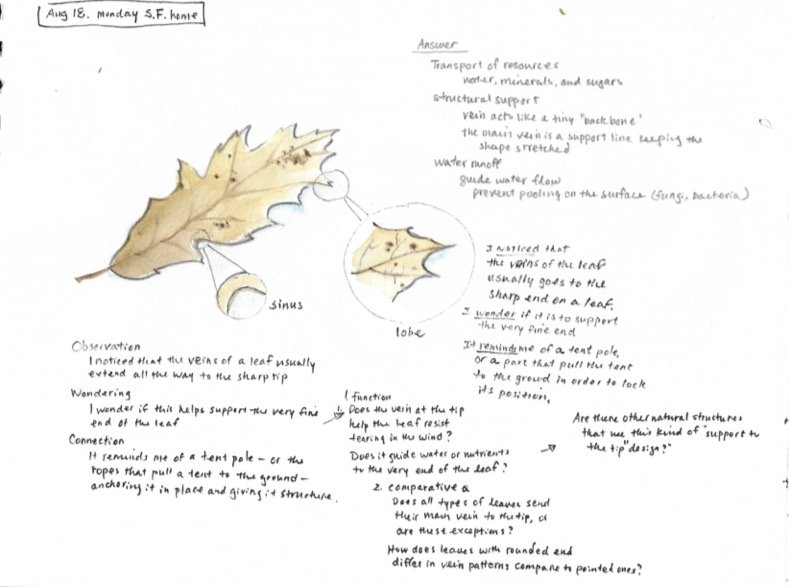 Aug 18. monday S.F. home
Answer
Transport of resources
water, minerals, and sugars
structural support
vein acts like a tiny "backbone"
the main vein is a support line keeping the
shape stretched
water runoff
guide water flow
prevent pooling on the surface (fungi, bacteria)
sinus
lobe
I noticed that
the veins of the leaf
usually goes to the
sharp end on a leaf.
I wonder if it is to support
the very fine end
It reminds me of a tent pole,
or a part that pull the tent
to the growd in order to lock
its position.
Observation
I noticed that the veins of a leaf usually
extend all the way to the sharp tip
Wondering
I wonder if this helps support the very fine
end of the leaf
Connection
It reminds me of a tent pole – or the
ropes that pull a tent to the ground –
anchoring it in place and giving it structure.
1 function
1. Does the vein at the tip
help the leaf resist
tearing in the wind?
Does it guide water or nutrients
to the very end of the leaf?
2. comparative Q
Does all types of leaves send
their main vein to the tip, or
are these exceptions?
How does leaves with rounded end
differ in vein patterns compare to pointed ones?
Are there other natural structures
that use this kind of "support to
the tip" design?"